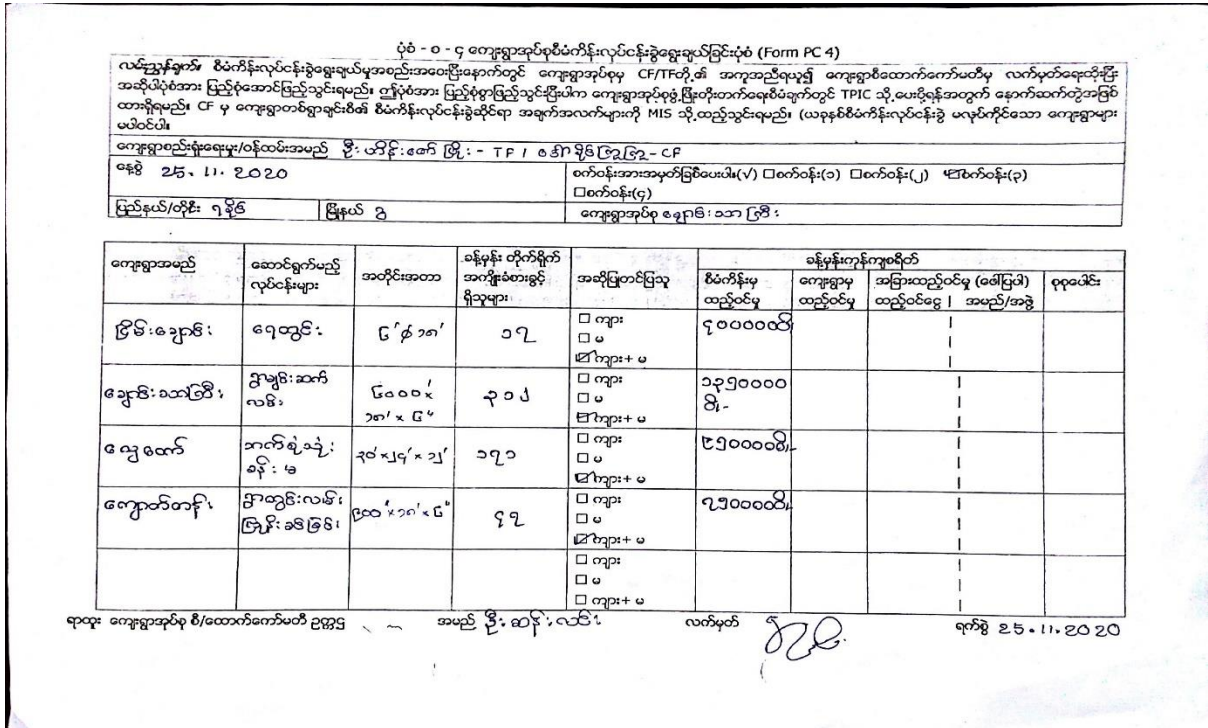 ပုံစံ - စ - ၄ ကျေးရွာအုပ်စုစီမံကိန်းလုပ်ငန်းခွဲရွေးချယ်ခြင်းပုံစံ (Form PC 4)
လမ်းညွှန်ချက်။ စီမံကိန်းလုပ်ငန်းခွဲရွေးချယ်မှုအစည်းအဝေးပြီးနောက်တွင် ကျေးရွာအုပ်စုမှ CF/TFတို့၏ အကူအညီရယူ၍ ကျေးရွာစီထောက်ကော်မတီမှ လက်မှတ်ရေးထိုးပြီး
အဆိုပါပုံစံအား ပြည့်စုံအောင်ဖြည့်သွင်းရမည်။ ဤပုံစံအား ပြည့်စုံစွာဖြည့်သွင်းပြီးပါက ကျေးရွာအုပ်စုဖွံ့ဖြိုးတိုးတက်ရေးစီမံချက်တွင် TPIC သို့ ပေးပို့ရန်အတွက် နောက်ဆက်တွဲအဖြစ်
ထားရှိရမည်။ CF မှ ကျေးရွာတစ်ရွာချင်းစီ၏ စီမံကိန်းလုပ်ငန်းခွဲဆိုင်ရာ အချက်အလက်များကို MIS သို့ ထည့်သွင်းရမည်။ (ယခုနှစ်စီမံကိန်းလုပ်ငန်းခွဲ မလုပ်ကိုင်သော ကျေးရွာများ
မပါဝင်ပါ။
ကျေးရွာစည်းရုံးရေးမှူး/ဝန်ထမ်းအမည် ဦးဟိန်းဇော်ဖြိုး - TF / - CF
နေ့စွဲ 25. 11. 2020 စက်ဝန်းအားအမှတ်ခြစ်ပေးပါ။(√) □စက်ဝန်း(၁) □စက်ဝန်း(၂) ☑စက်ဝန်း(၃)
□စက်ဝန်း(၄)
ပြည်နယ်/တိုင်း ရခိုင် မြို့နယ် ဂွ ကျေးရွာအုပ်စု ချောင်းသာကြီး
ကျေးရွာအမည် ဆောင်ရွက်မည့် လုပ်ငန်းများ အတိုင်းအတာ ခန့်မှန်း တိုက်ရိုက် အကျိုးခံစားခွင့် ရှိသူများ အဆိုပြုတင်ပြသူ ခန့်မှန်းကုန်ကျစရိတ်
စီမံကိန်းမှ ထည့်ဝင်မှု ကျေးရွာမှ ထည့်ဝင်မှု အခြားထည့်ဝင်မှု (ဖေါ်ပြပါ) ထည့်ဝင်ငွေ | အမည်/အဖွဲ့ စုစုပေါင်း
ငြိမ်းချောင်း ရေတွင်း ၆'ϕ ၁၈' ၁၇ □ ကျား
□ မ
☑ ကျား+ မ ၄၀၀၀၀၀၀ိ/
ချောင်းသာကြီး ရွာချင်းဆက် လမ်း ၆၀၀၀' x ၁၈' x ၆" ၃၁၂ □ ကျား
□ မ
☑ ကျား+ မ ၁၃၅၀၀၀၀ ၀ိ/-
လှေတော် ဘက်စုံသုံး ခန်းမ ၃၀' x ၂၄' x ၁၂' ၁၇၁ □ ကျား
□ မ
☑ ကျား+ မ ၉၅၀၀၀၀၀ိ/-
ကျောတ်တန်း ရွာတွင်းလမ်း မြေနီးခင်းခြင်း ၉၀၀' x ၁၈' x ၆" ၄၇ □ ကျား
□ မ
☑ ကျား+ မ ၇၅၀၀၀၀၀ိ/
□ ကျား
□ မ
□ ကျား+ မ
ရာထူး ကျေးရွာအုပ်စု စီ/ထောက်ကော်မတီ ဥက္ကဌ အမည် ဦးဆန်းလင်း လက်မှတ် ရက်စွဲ 25.11.2020